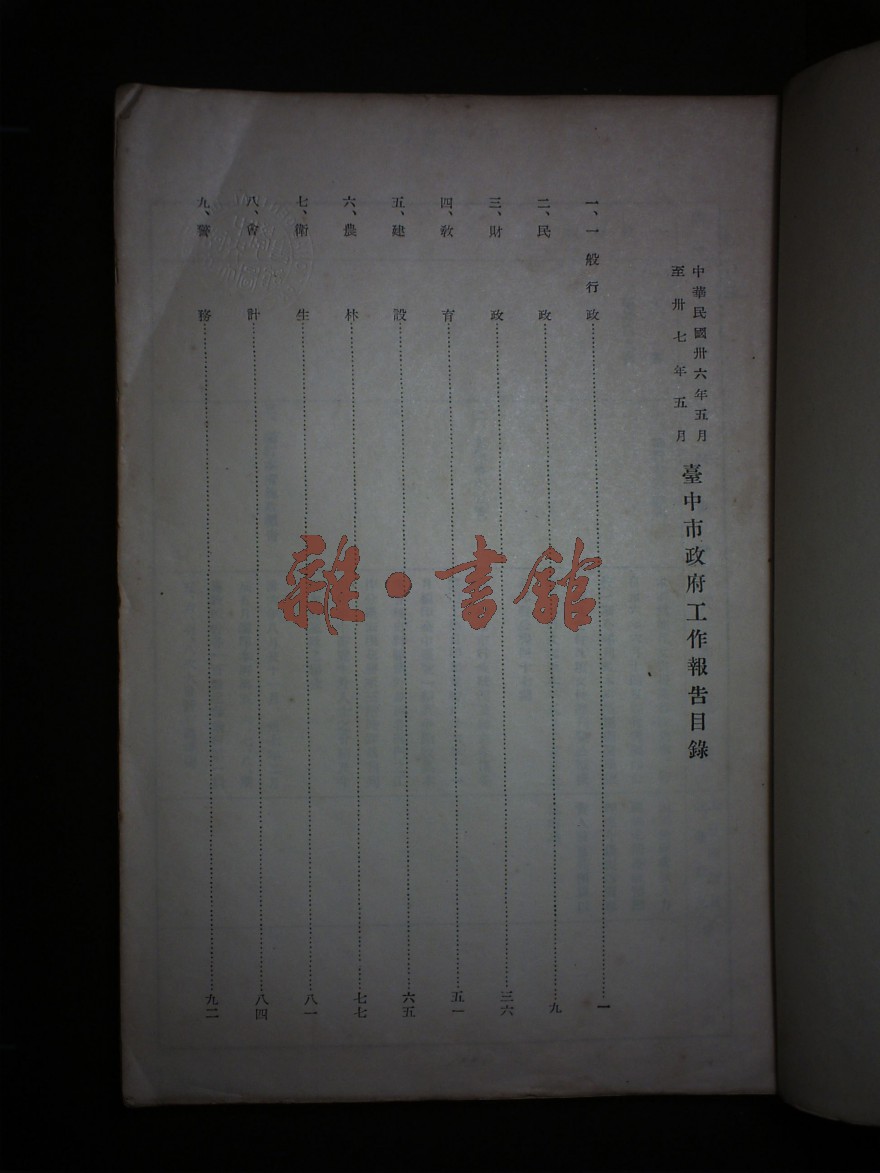 中華民國卅六年五月
至卅七年五月
臺中市政府工作報告目錄
一、一般行政………一
二、民政………九
三、財政………三六
四、教育………五一
五、建設………六五
六、農林………七七
七、衛生………八一
八、會計………八四
九、警務………九二
雜·書館